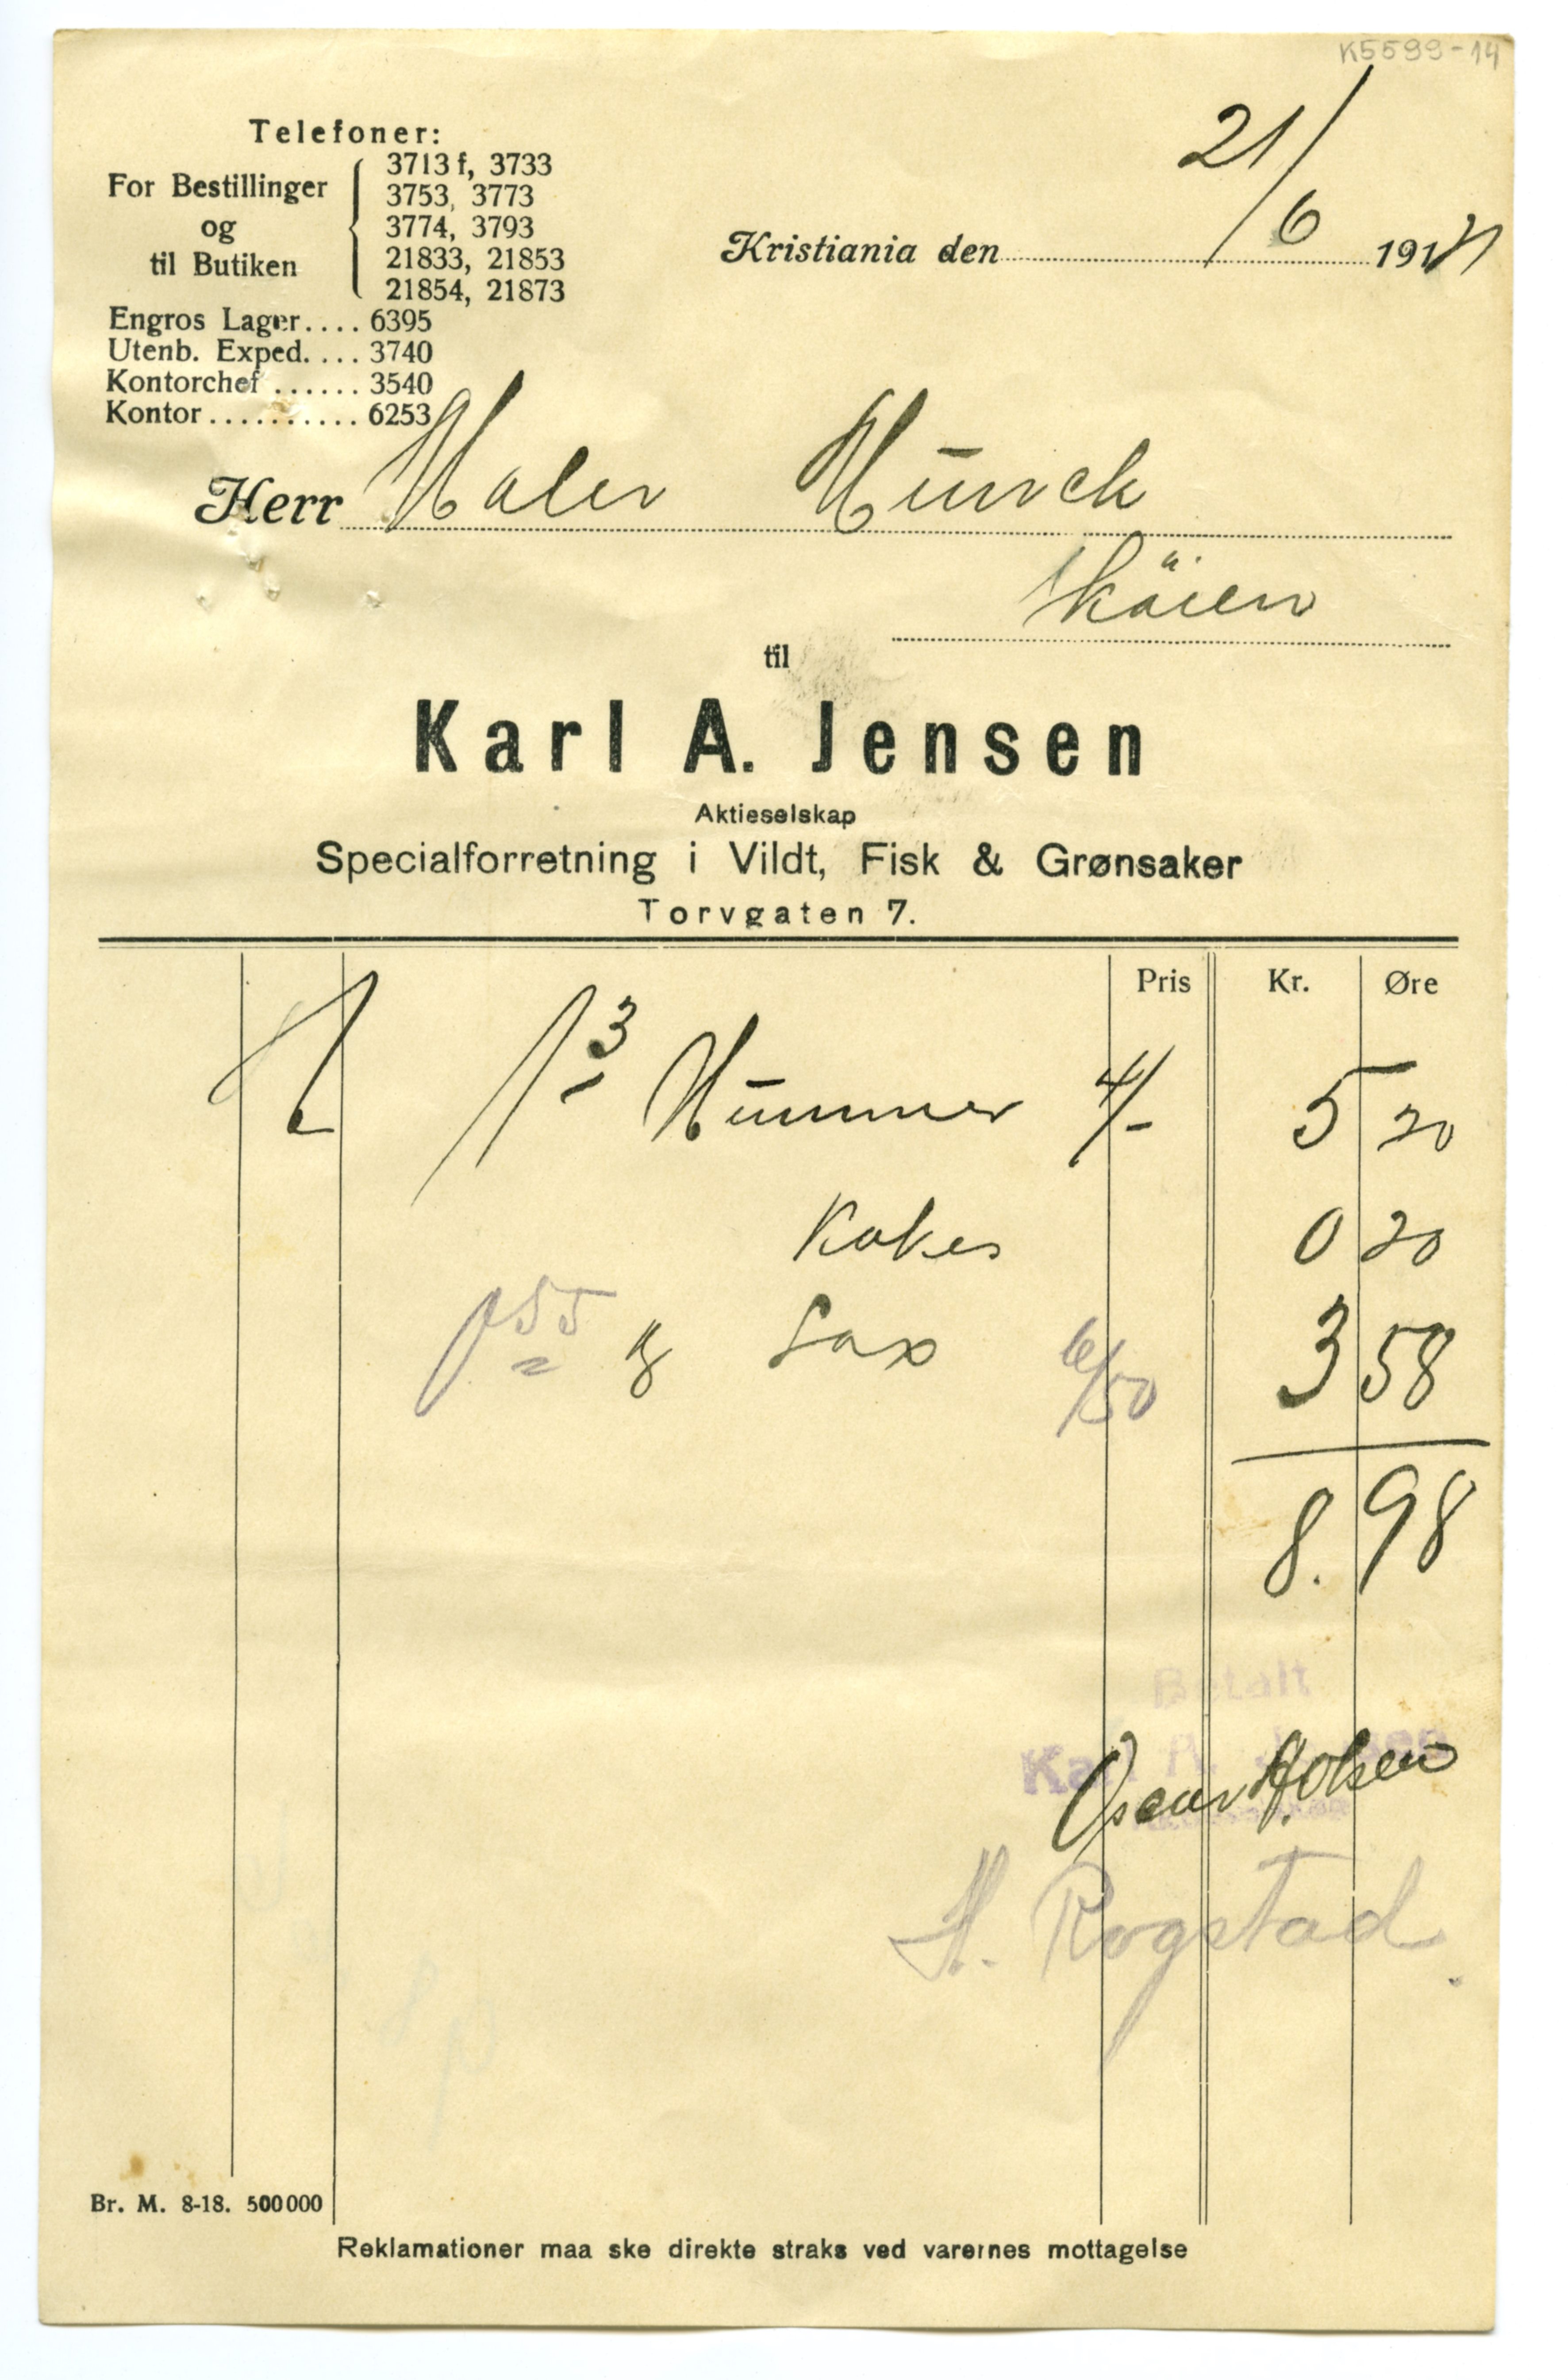 K5599-14
Telefoner:
For Bestillinger og til Butiken
3713 f, 3733
3753, 3773
3774, 3793
21833, 21853
21854, 21873
Engros Lager.... 6395
Utenb. Exped. ... 3740
Kontorchef ...... 3540
Kontor .......... 6253
21/6
Kristiania den 191
Herr Maler Munch
Sköien
til
Karl A. Jensen
Aktieselskap
Specialforretning i Vildt, Fisk & Grønsaker
Torvgaten 7.
Pris Kr. Øre
1 3 Hummer 4/- 5 20
Kokes 0 20
0 55 Lax 6/50 3 58
8. 98
Betalt
Karl A. Jensen
Oscar A. Olsen
H. Rogstad.
Br. M. 8-18. 500000
Reklamationer maa ske direkte straks ved varernes mottagelse